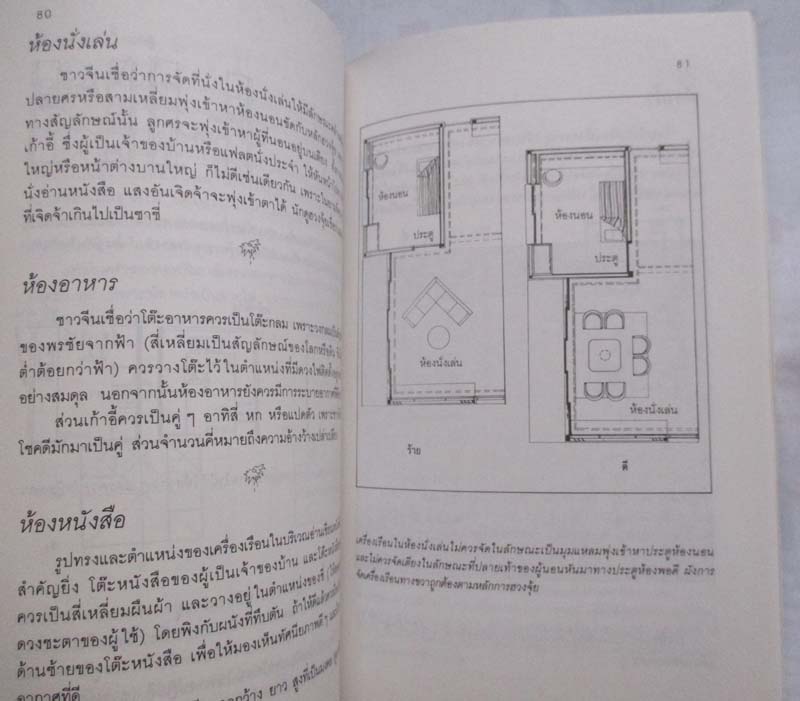 80
ห้องนั่งเล่น
ชาวจีนเชื่อว่าการจัดที่นั่งในห้องนั่งเล่นให้มีลักษณะ
ปลายศรหรือสามเหลี่ยมพุ่งเข้าหาห้องนอนขัดกับหลักฮวงจุ้ย
ทางสัญลักษณ์นั้น ลูกศรจะพุ่งเข้าหาผู้ที่นอนอยู่บนเตียง
เก้าอี้ ซึ่งผู้เป็นเจ้าของบ้านหรือแฟลตนั่งประจำ ให้หันหน้า
ใหญ่หรือหน้าต่างบานใหญ่ ก็ไม่ดีเช่นเดียวกัน เพราะ
นั่งอ่านหนังสือ แสงอันเจิดจ้าจะพุ่งเข้าตาได้ นักดูฮวงจุ้ย
ที่เจิดจ้าเกินไปเป็นชาชี่
ห้องอาหาร
ชาวจีนเชื่อว่าโต๊ะอาหารควรเป็นโต๊ะกลม เพราะวงกลม
ของพรชัยจากฟ้า (สี่เหลี่ยมเป็นสัญลักษณ์ของโลกหรือดิน
ต่ำต้อยกว่าฟ้า) ควรวางโต๊ะไว้ในตำแหน่งที่มีดวงไฟติดตั้ง
อย่างสมดุล นอกจากนั้นห้องอาหารยังควรมีการระบายอากาศ
ส่วนเก้าอี้ควรเป็นคู่ ๆ อาทิสี่ หก หรือแปดตัว เพราะ
โชคดีมักมาเป็นคู่ ส่วนจำนวนคี่หมายถึงความอ้างว้างเปล่าเปลี่ยว
ห้องหนังสือ
รูปทรงและตำแหน่งของเครื่องเรือนในบริเวณอ่านเขียน
สำคัญยิ่ง โต๊ะหนังสือของผู้เป็นเจ้าของบ้าน และโต๊ะ
ควรเป็นสี่เหลี่ยมผืนผ้า และวางอยู่ในตำแหน่งของชี่
ดวงชะตาของผู้ใช้) โดยพิงกับผนังที่ทึบตัน ถ้าให้ดีแล้ว
ด้านซ้ายของโต๊ะหนังสือ เพื่อให้มองเห็นทัศนียภาพดี ๆ
อากาศที่ดี
กว้าง ยาว สูงที่เป็นมงคล
81
ห้องนอน
ประตู
ห้องนั่งเล่น
ร้าย
ห้องนอน
ประตู
ห้องนั่งเล่น
ดี
เครื่องเรือนในห้องนั่งเล่นไม่ควรจัดในลักษณะเป็นมุมแหลมพุ่งเข้าหาประตูห้องนอน
และไม่ควรจัดเตียงในลักษณะที่ปลายเท้าของผู้นอนหันมาทางประตูห้องพอดี ผังการ
จัดเครื่องเรือนทางขวาถูกต้องตามหลักการฮวงจุ้ย